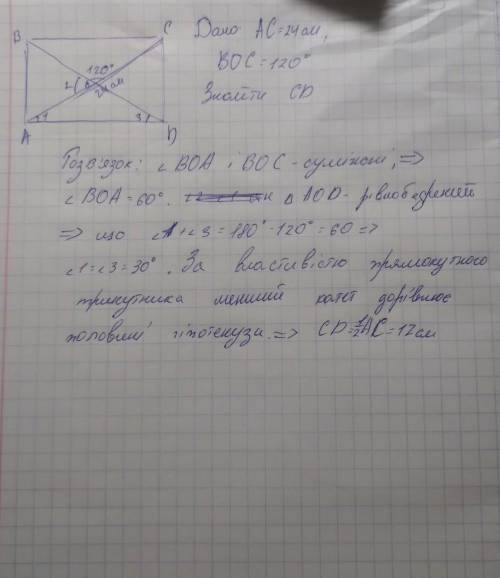 B
C
Дано AC=24см,
120°
BOC=120°
2
24 см
Знайти CD
A
1
3
D
Розв'язок: ∠BOA і BOC - суміжні, =>
∠BOA = 60°. Δ AOD - рівнобедрений
=> що ∠1+∠3 = 180° - 120° = 60 =>
∠1=∠3=30°. За властивістю прямокутного
трикутника менший катет дорівнює
половині гіпотенузи. => CD=½AC=12см